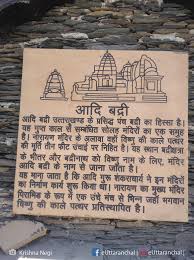 आदि बद्री
आदि बद्री उत्तराखण्ड के प्रसिद्ध पंच बद्री का हिस्सा है।
यह गुप्त काल से सम्बंधित सोलह मंदिरों का एक समूह
है। नारायण मंदिर के अलावा यहाँ विष्णु की काले पत्थर
की मूर्ति तीन फीट उंचाई पर निहित है। यह स्थान बद्रीक्षत्रा
के भीतर और बद्रीनाथ को विष्णु नाम के लिए, मंदिर
आदि बद्री के नाम से जाना जाता है।
यह माना जाता है कि आदि गुरू शंकराचार्य ने इन मंदिरों
का निर्माण कार्य शुरू किया था। नारायण का मुख्य मंदिर
पिरामिड के रूप में एक उंचे मंच से भिन्न जहाँ भगवान
विष्णु की काले पत्थर प्रतिस्थापित है।
Krishna Negi
eUttaranchal
eUttaranchal